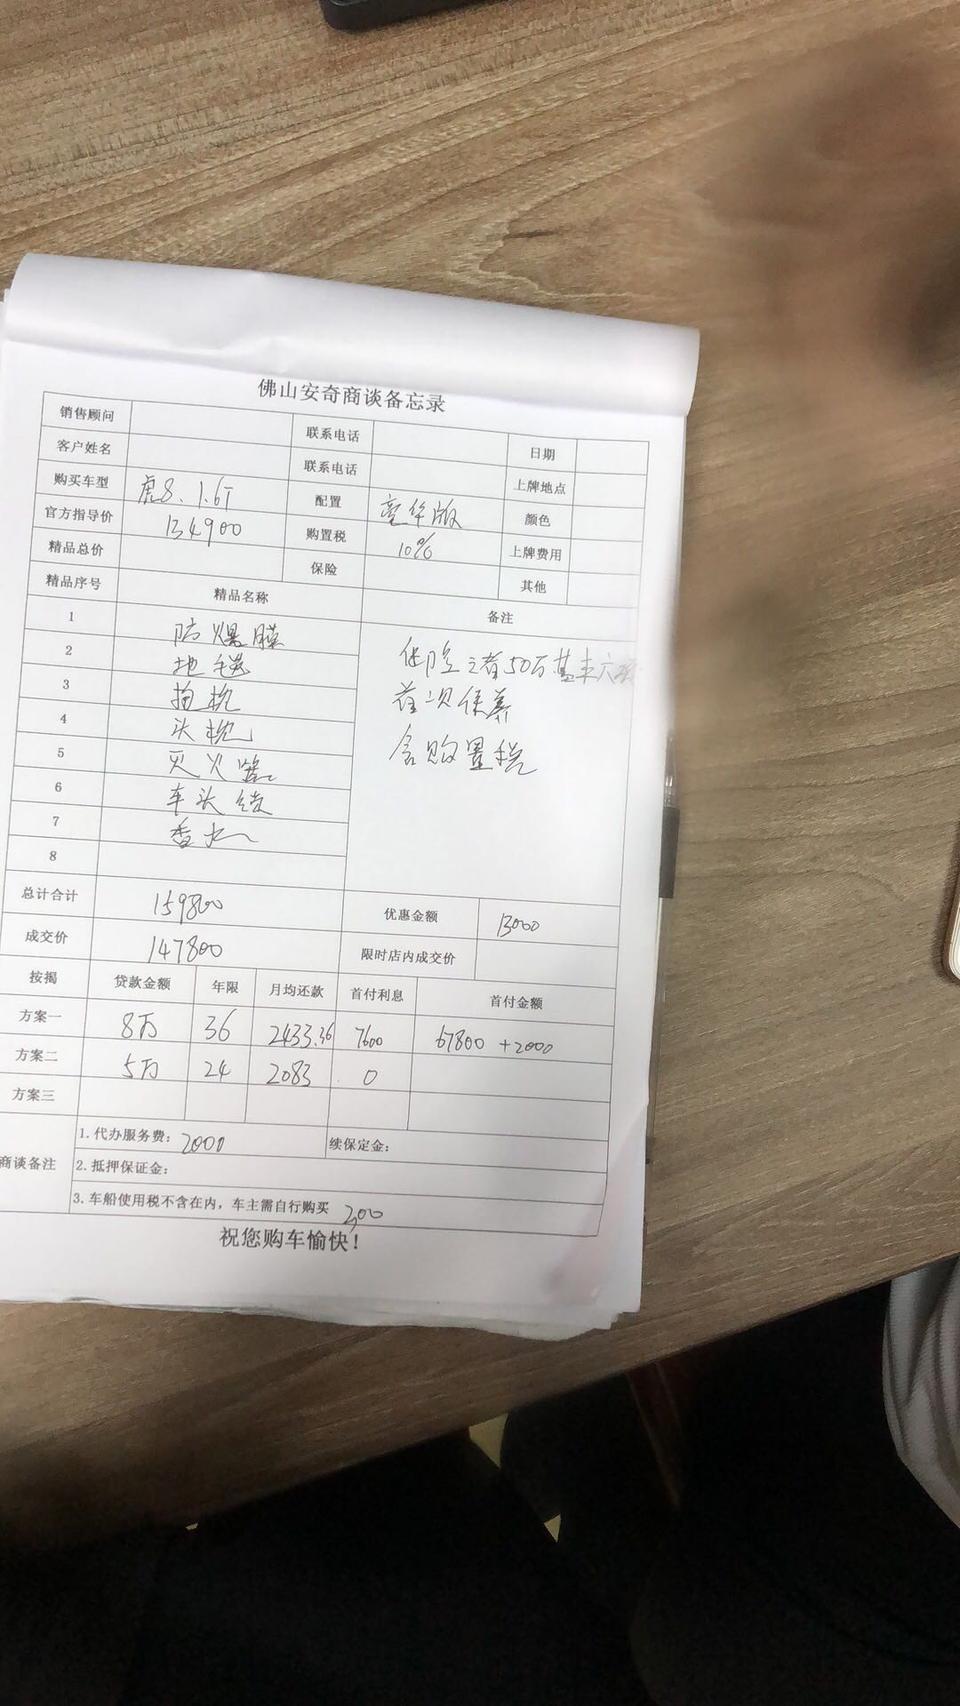 佛山安奇商谈备忘录
销售顾问 联系电话 日期
客户姓名 联系电话 上牌地点
购买车型 虎8、1.6T 配置 豪华版 颜色
官方指导价 134900 购置税 10% 上牌费用
精品总价 保险 其他
精品序号 精品名称 备注
1 防爆膜
2 地毯
3 抱枕
4 头枕
5 灭火器
6 车头
7 香水
8
保险 三者50万 基本六
首次保养
含购置税
总计合计 159800 优惠金额 13000
成交价 147800 限时店内成交价
按揭 贷款金额 年限 月均还款 首付利息 首付金额
方案一 8万 36 2433.36 7600 67800 +2000
方案二 5万 24 2083 0
方案三
商谈备注 1.代办服务费: 2000 续保定金:
2.抵押保证金:
3.车船使用税不含在内，车主需自行购买 300
祝您购车愉快!